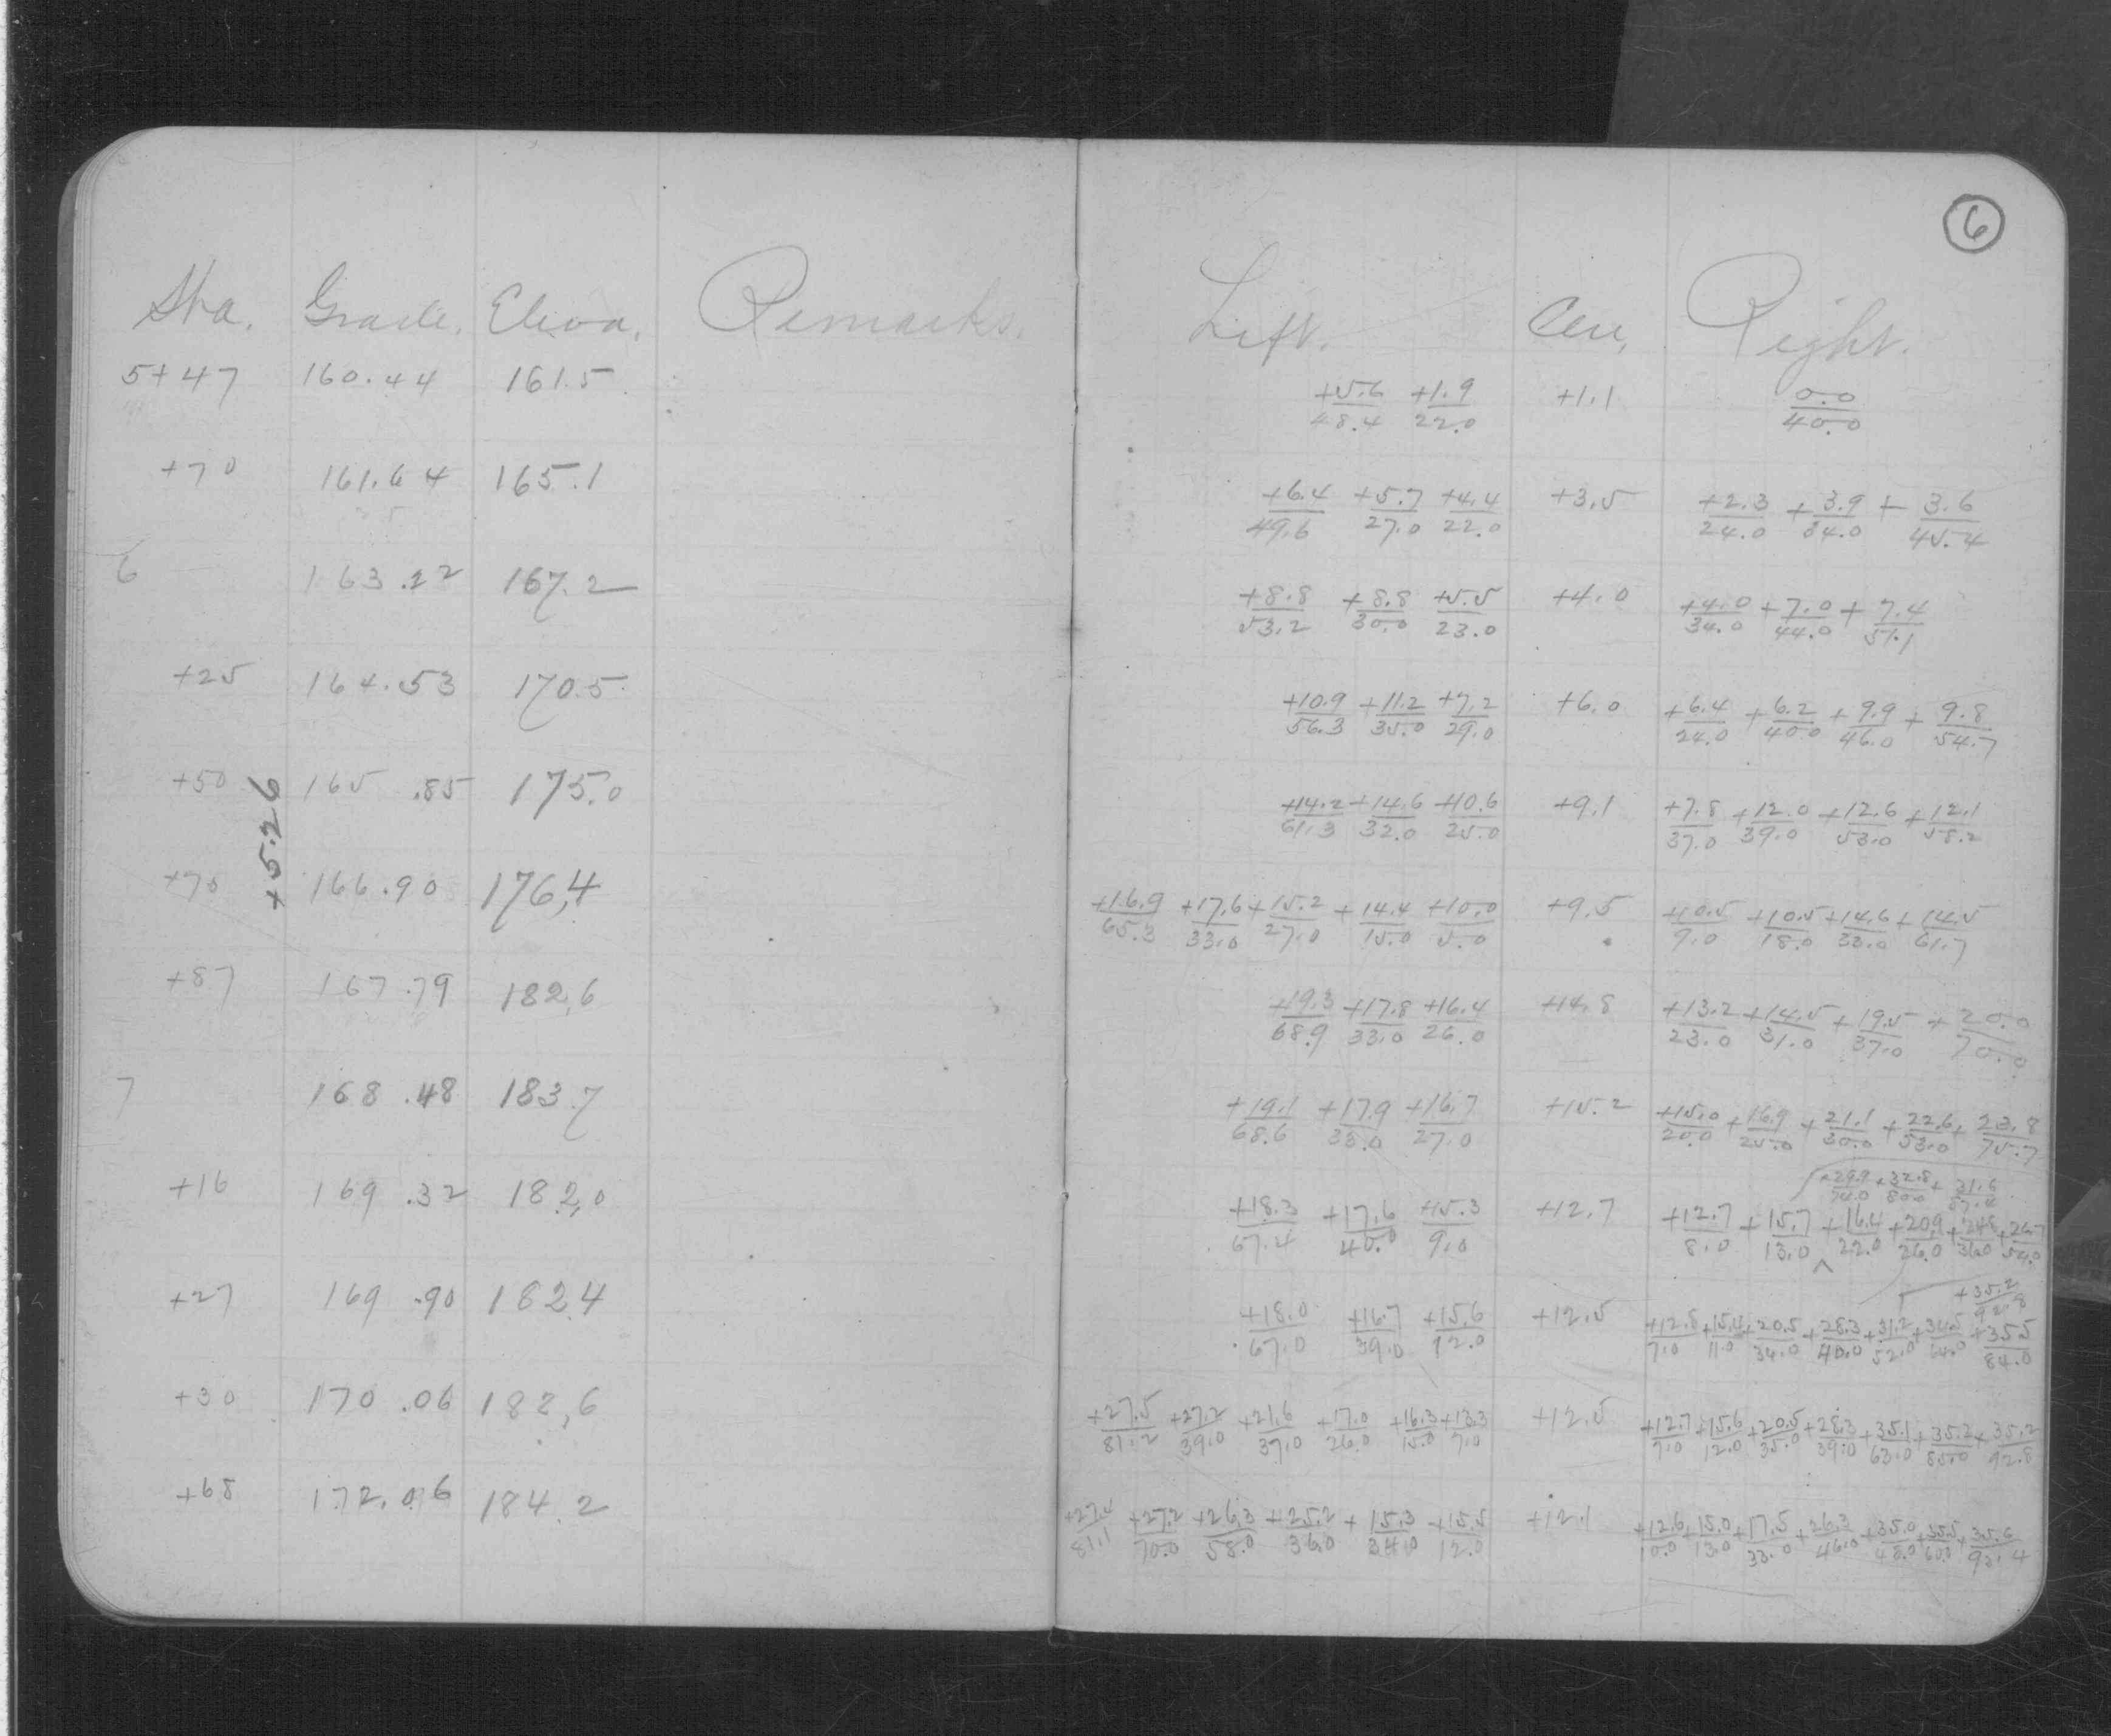 6
Sta. Grade. Eleva. Remarks. Left. Cen. Right.
5+47 160.44 161.5 +5.6/48.4 +1.9/22.0 +1.1 0.0/40.0
+70 161.64 165.1 +6.4/49.6 +5.7/27.0 +4.4/22.0 +3.5 +2.3/24.0 +3.9/34.0 +3.6/45.4
6 163.22 167.2 +8.8/53.2 +8.8/30.0 +5.5/23.0 +4.0 +4.0/34.0 +7.0/44.0 +7.4/51.1
+25 164.53 170.5 +10.9/56.3 +11.2/35.0 +7.2/29.0 +6.0 +6.4/24.0 +6.2/40.0 +9.9/46.0 +9.8/54.7
+50 165.85 175.0 +14.2/61.3 +14.6/32.0 +10.6/25.0 +9.1 +7.8/37.0 +12.0/39.0 +12.6/53.0 +12.1/58.2
+5.26
+70 166.90 176.4 +16.9/65.3 +17.6/33.0 +15.2/27.0 +14.4/15.0 +10.0/5.0 +9.5 +10.5/9.0 +10.5/18.0 +14.6/33.0 +14.5/61.7
+87 167.79 182.6 +19.3/68.9 +17.8/33.0 +16.4/26.0 +14.8 +13.2/23.0 +14.5/31.0 +19.5/37.0 +20.0/70.0
7 168.48 183.7 +19.1/68.6 +17.9/38.0 +16.7/27.0 +15.2 +15.0/20.0 +16.9/25.0 +21.1/30.0 +22.6/53.0 +23.8/75.7
+29.9/74.0 +32.8/80.0 +31.6/87.4
+16 169.32 182.0 +18.3/67.4 +17.6/40.0 +15.3/9.0 +12.7 +12.7/8.0 +15.7/13.0 +16.4/22.0 +20.9/26.0 +24.8/36.0 +26.7/54.0
+35.2/92.8
+27 169.90 182.4 +18.0/67.0 +16.7/39.0 +15.6/12.0 +12.5 +12.8/7.0 +15.4/11.0 +20.5/34.0 +28.3/40.0 +31.2/52.0 +34.5/64.0 +35.5/84.0
+30 170.06 182.6 +27.5/81.2 +27.2/39.0 +21.6/37.0 +17.0/26.0 +16.3/15.0 +13.3/7.0 +12.5 +12.7/7.0 +15.6/12.0 +20.5/35.0 +28.3/39.0 +35.1/63.0 +35.2/85.0 +35.2/92.8
+68 172.06 184.2 +27.4/81.1 +27.2/70.0 +26.3/58.0 +25.2/36.0 +15.3/34.0 +15.5/12.0 +12.1 +12.6/10.0 +15.0/13.0 +17.5/33.0 +26.3/46.0 +35.0/48.0 +35.5/60.0 +35.6/93.4